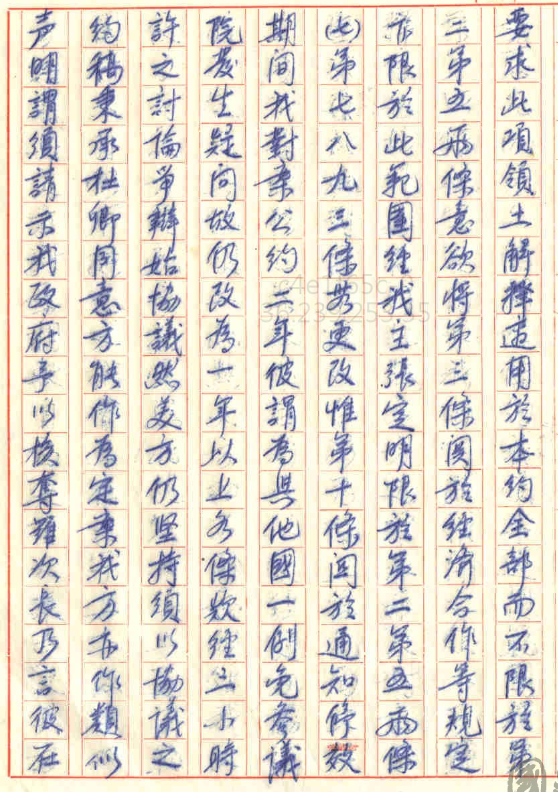 要求此項領土解釋适用於本約全部而不限於第
二第五兩條意欲將第三條関於經濟合作等規定
亦限於此範圍經我主張定明限於第二第五兩條
(七)第七八九三條無更改惟第十條関於通知修效
期间我對案公約二年彼謂為與他國一例免参議
院發生疑问故仍改為一年以上各條欵經三小時
許之討論爭辯始協議然美方仍坚持須以協議之
約稿秉承杜卿同意方能作為定案我方亦作類似
声明謂須請示我政府予以核奪羅次長乃言彼在
國